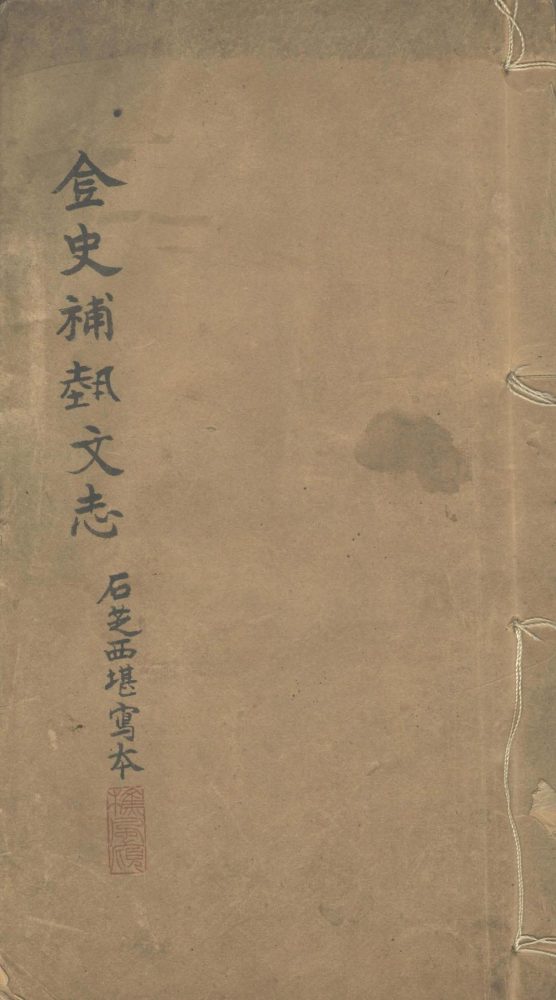 金史補埶文志
石芝西堪寫本